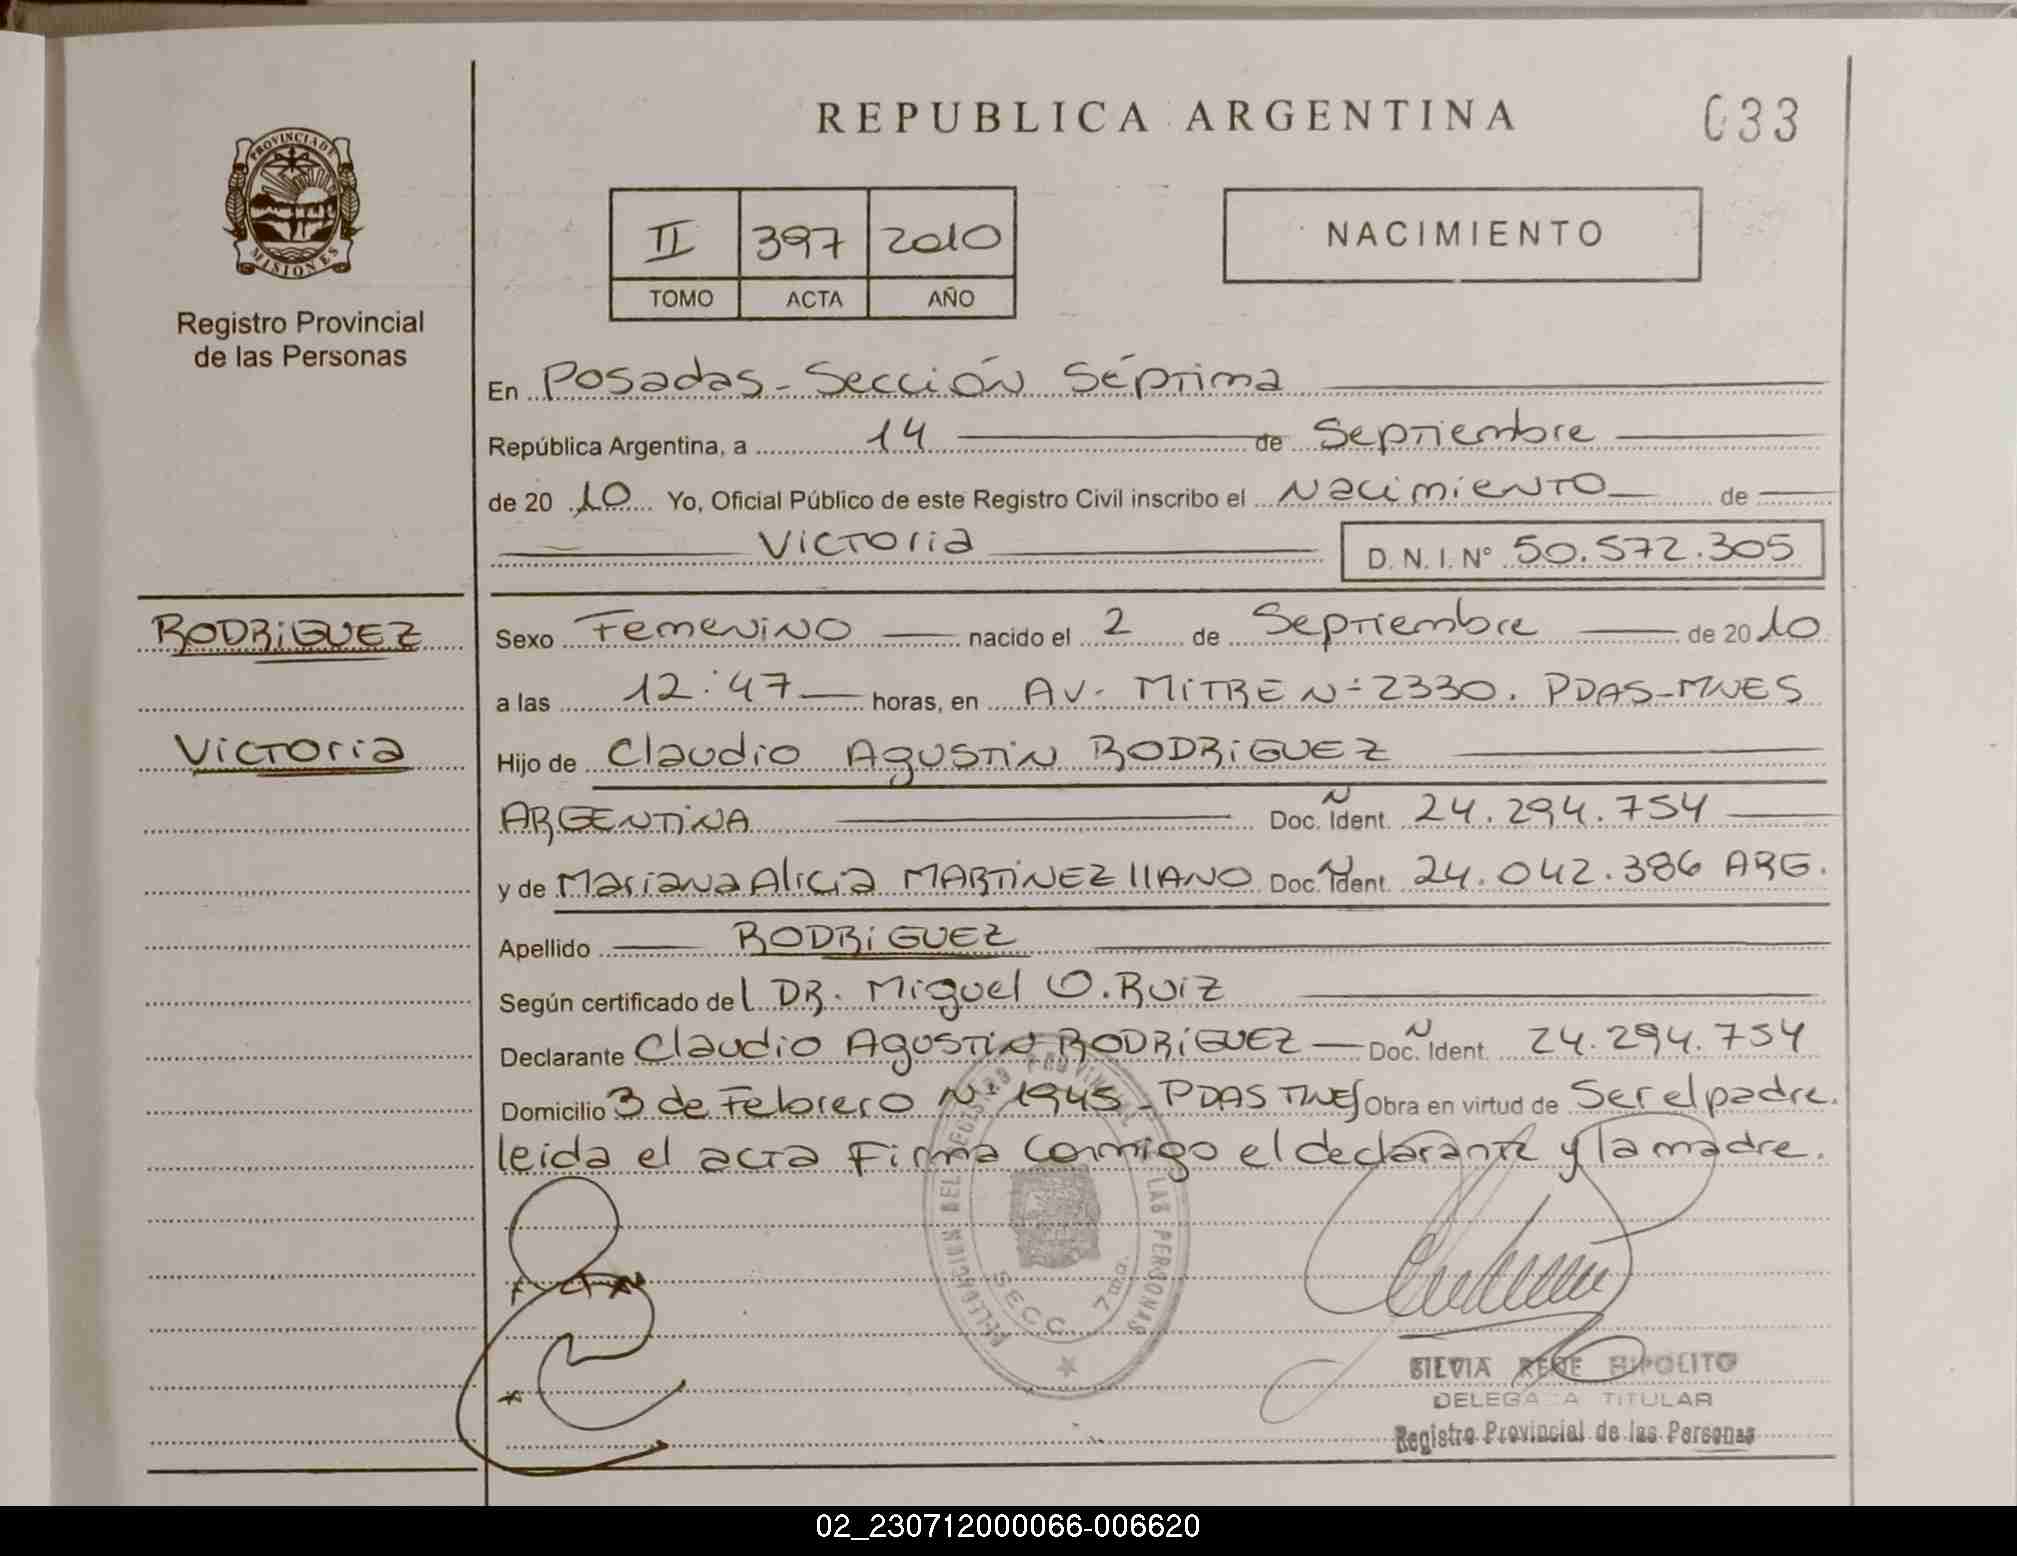 REPUBLICA ARGENTINA
033
PROVINCIA DE
MISIONES
Registro Provincial
de las Personas
II 397 2010
TOMO ACTA AÑO
NACIMIENTO
En Posadas - Sección Séptima
República Argentina, a 14 de Septiembre
de 20 10 Yo, Oficial Público de este Registro Civil inscribo el Nacimiento de
Victoria D. N. I. N° 50.572.305
RODRiGUEZ
Victoria
Sexo Femenino nacido el 2 de Septiembre de 20 10
a las 12:47 horas, en AV. MiTRE N° 2330. PDAS-MNES
Hijo de Claudio Agustin RODRiGUEZ
ARGENTiNA Doc. Ident. 24.294.754
y de Mariana Alicia MARTiNEZ llANO Doc. Ident. 24.042.386 ARG.
Apellido RODRiGUEZ
Según certificado del DR. Miguel O. Ruiz
Declarante Claudio Agustin RODRíGUEZ Doc. Ident. 24.294.754
Domicilio 3 de Febrero N° 1945 - PDAS MNES Obra en virtud de Ser el padre.
leida el acta Firma Conmigo el declarante y la madre.
DELEGACION DEL REGISTRO PROVINCIAL DE LAS PERSONAS
SECC. 7ma.
SILVIA RENE HIPOLITO
DELEGADA TITULAR
Registro Provincial de las Personas
02_230712000066-006620